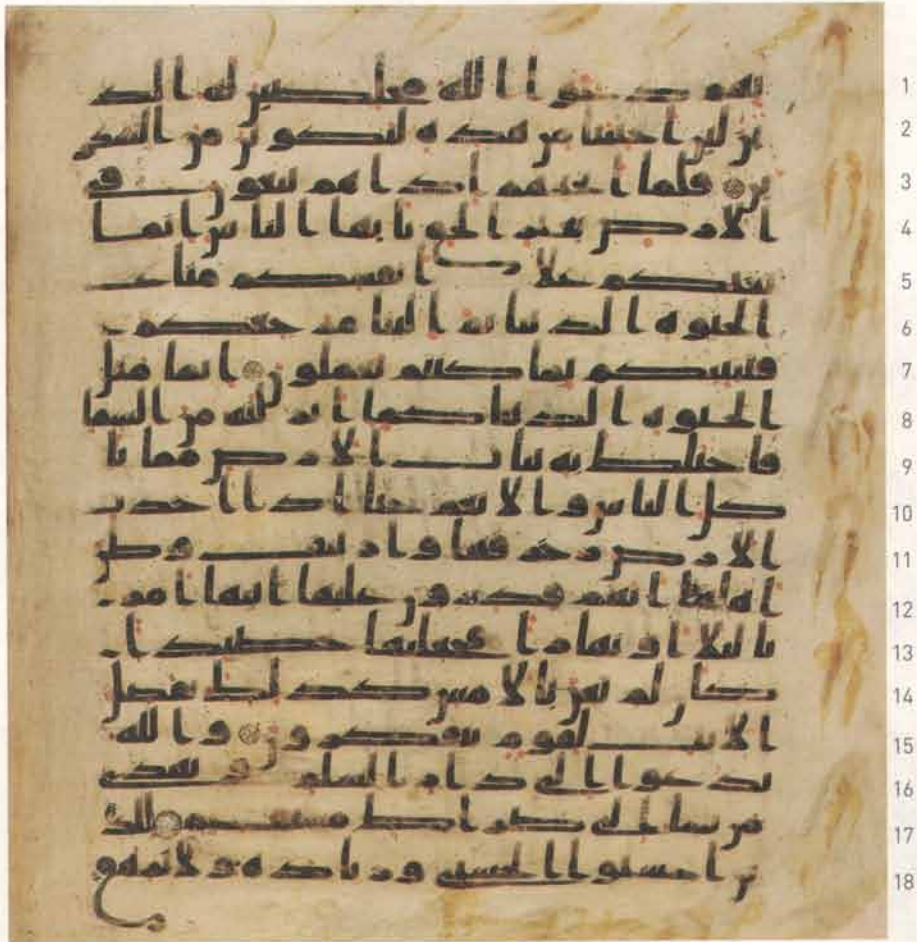 بهم دعوا الله مخلصين له الد 1
ين لئن انجيتنا من هذه لنكونن من الشكر 2
ين فلما انجيهم اذا هم يبغون في 3
الارض بغير الحق يايها الناس انما 4
بغيكم علا انفسكم متاع 5
الحيوة الدنيا ثم الينا مرجعكم 6
فننبيكم بما كنتم تعملون انما مثل 7
الحيوة الدنيا كما انزلنه من السما 8
فاختلط به نبات الارض مما يا 9
كل الناس والانعم حتا اذا اخذت 10
الارض زخرفها وازينت وظن 11
اهلها انهم قدرون عليها اتيها امر 12
نا ليلا او نهارا فجعلنها حصيدا 13
كان لم تغن بالامس كذلك نفصل 14
الايت لقوم يتفكرون والله 15
يدعوا الى دار السلم ويهدي 16
من يشا الى صراط مستقيم للذ 17
ين احسنوا الحسنى وزيادة ولا يرهق 18